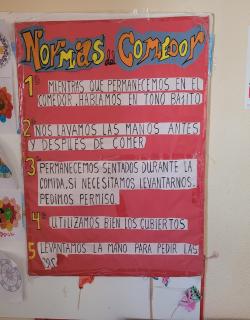 Normas de Comedor
1 MIENTRAS QUE PERMANECEMOS EN EL
COMEDOR, HABLAMOS EN TONO BAJITO
2 NOS LAVAMOS LAS MANOS ANTES
Y DESPUES DE COMER
3 PERMANECEMOS SENTADOS DURANTE LA
COMIDA, SI NECESITAMOS LEVANTARNOS
PEDIMOS PERMISO.
4 UTILIZAMOS BIEN LOS CUBIERTOS
5 LEVANTAMOS LA MANO PARA PEDIR LAS